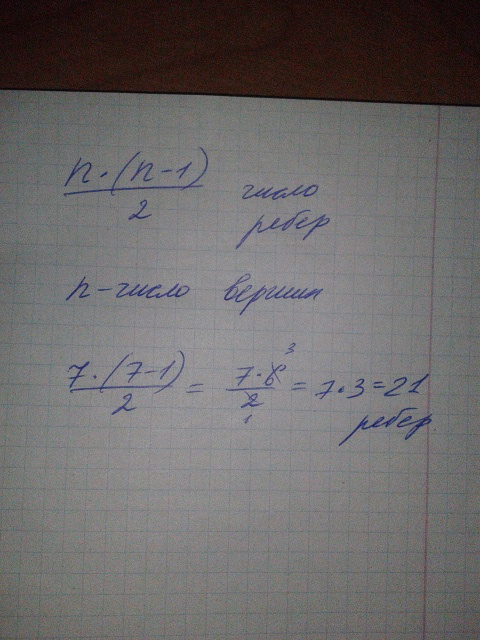 n·(n-1)/2 число ребер
n - число вершин
7·(7-1)/2 = 7·6̸³/2̸₁ = 7·3=21 ребер.